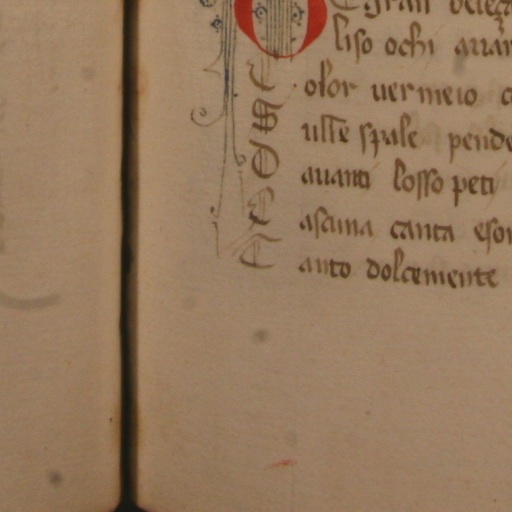 gran
liso ochi auar
C olor uermeio c
S ulle spale pende
D auanti losso peti
C ascuna canta eson
T anto dolcemente